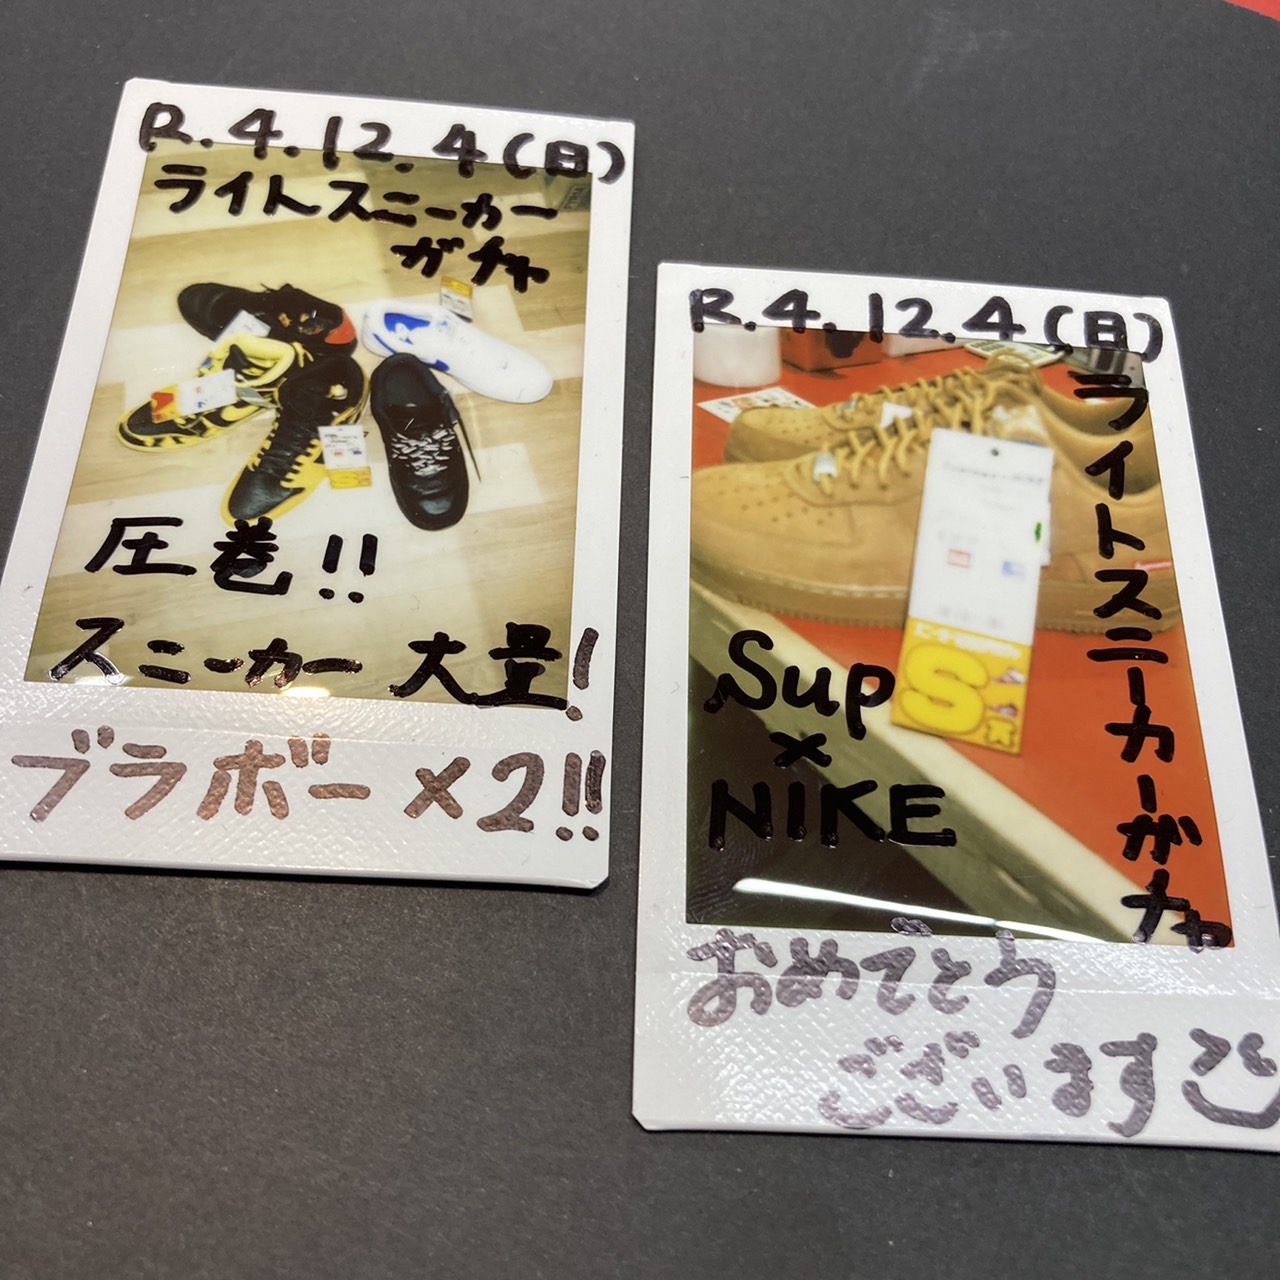 R.4.12.4(日)
ライトスニーカー
ガチャ
圧巻!!
スニーカー大量!
ブラボー×2!!
R.4.12.4(日)
ライトスニーカーガチャ
S
Sup
×
NIKE
おめでとう
ございます